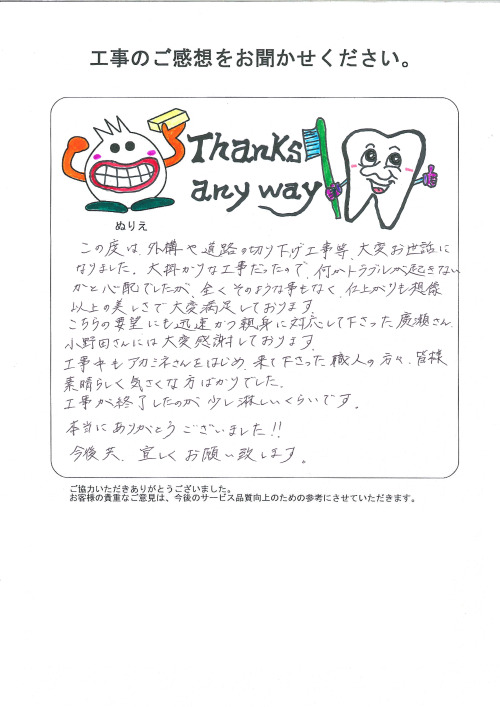 工事のご感想をお聞かせください。
Thanks
any way
ぬりえ
この度は、外構や道路の切り下げ工事等、大変お世話に
なりました。大掛かりな工事だったので、何かトラブルが起きない
かと心配でしたが、全くそのような事もなく、仕上がりも想像
以上の美しさで大変満足しております。
こちらの要望にも迅速かつ親身に対応して下さった廣瀬さん、
小野田さんには大変感謝しております。
工事中もアカミネさんをはじめ、来て下さった職人の方々、皆様
素晴らしく気さくな方ばかりでした。
工事が終了したのが少し淋しいくらいです。
本当にありがとうございました!!
今後共、宜しくお願い致します。
ご協力いただきありがとうございました。
お客様の貴重なご意見は、今後のサービス品質向上のための参考にさせていただきます。